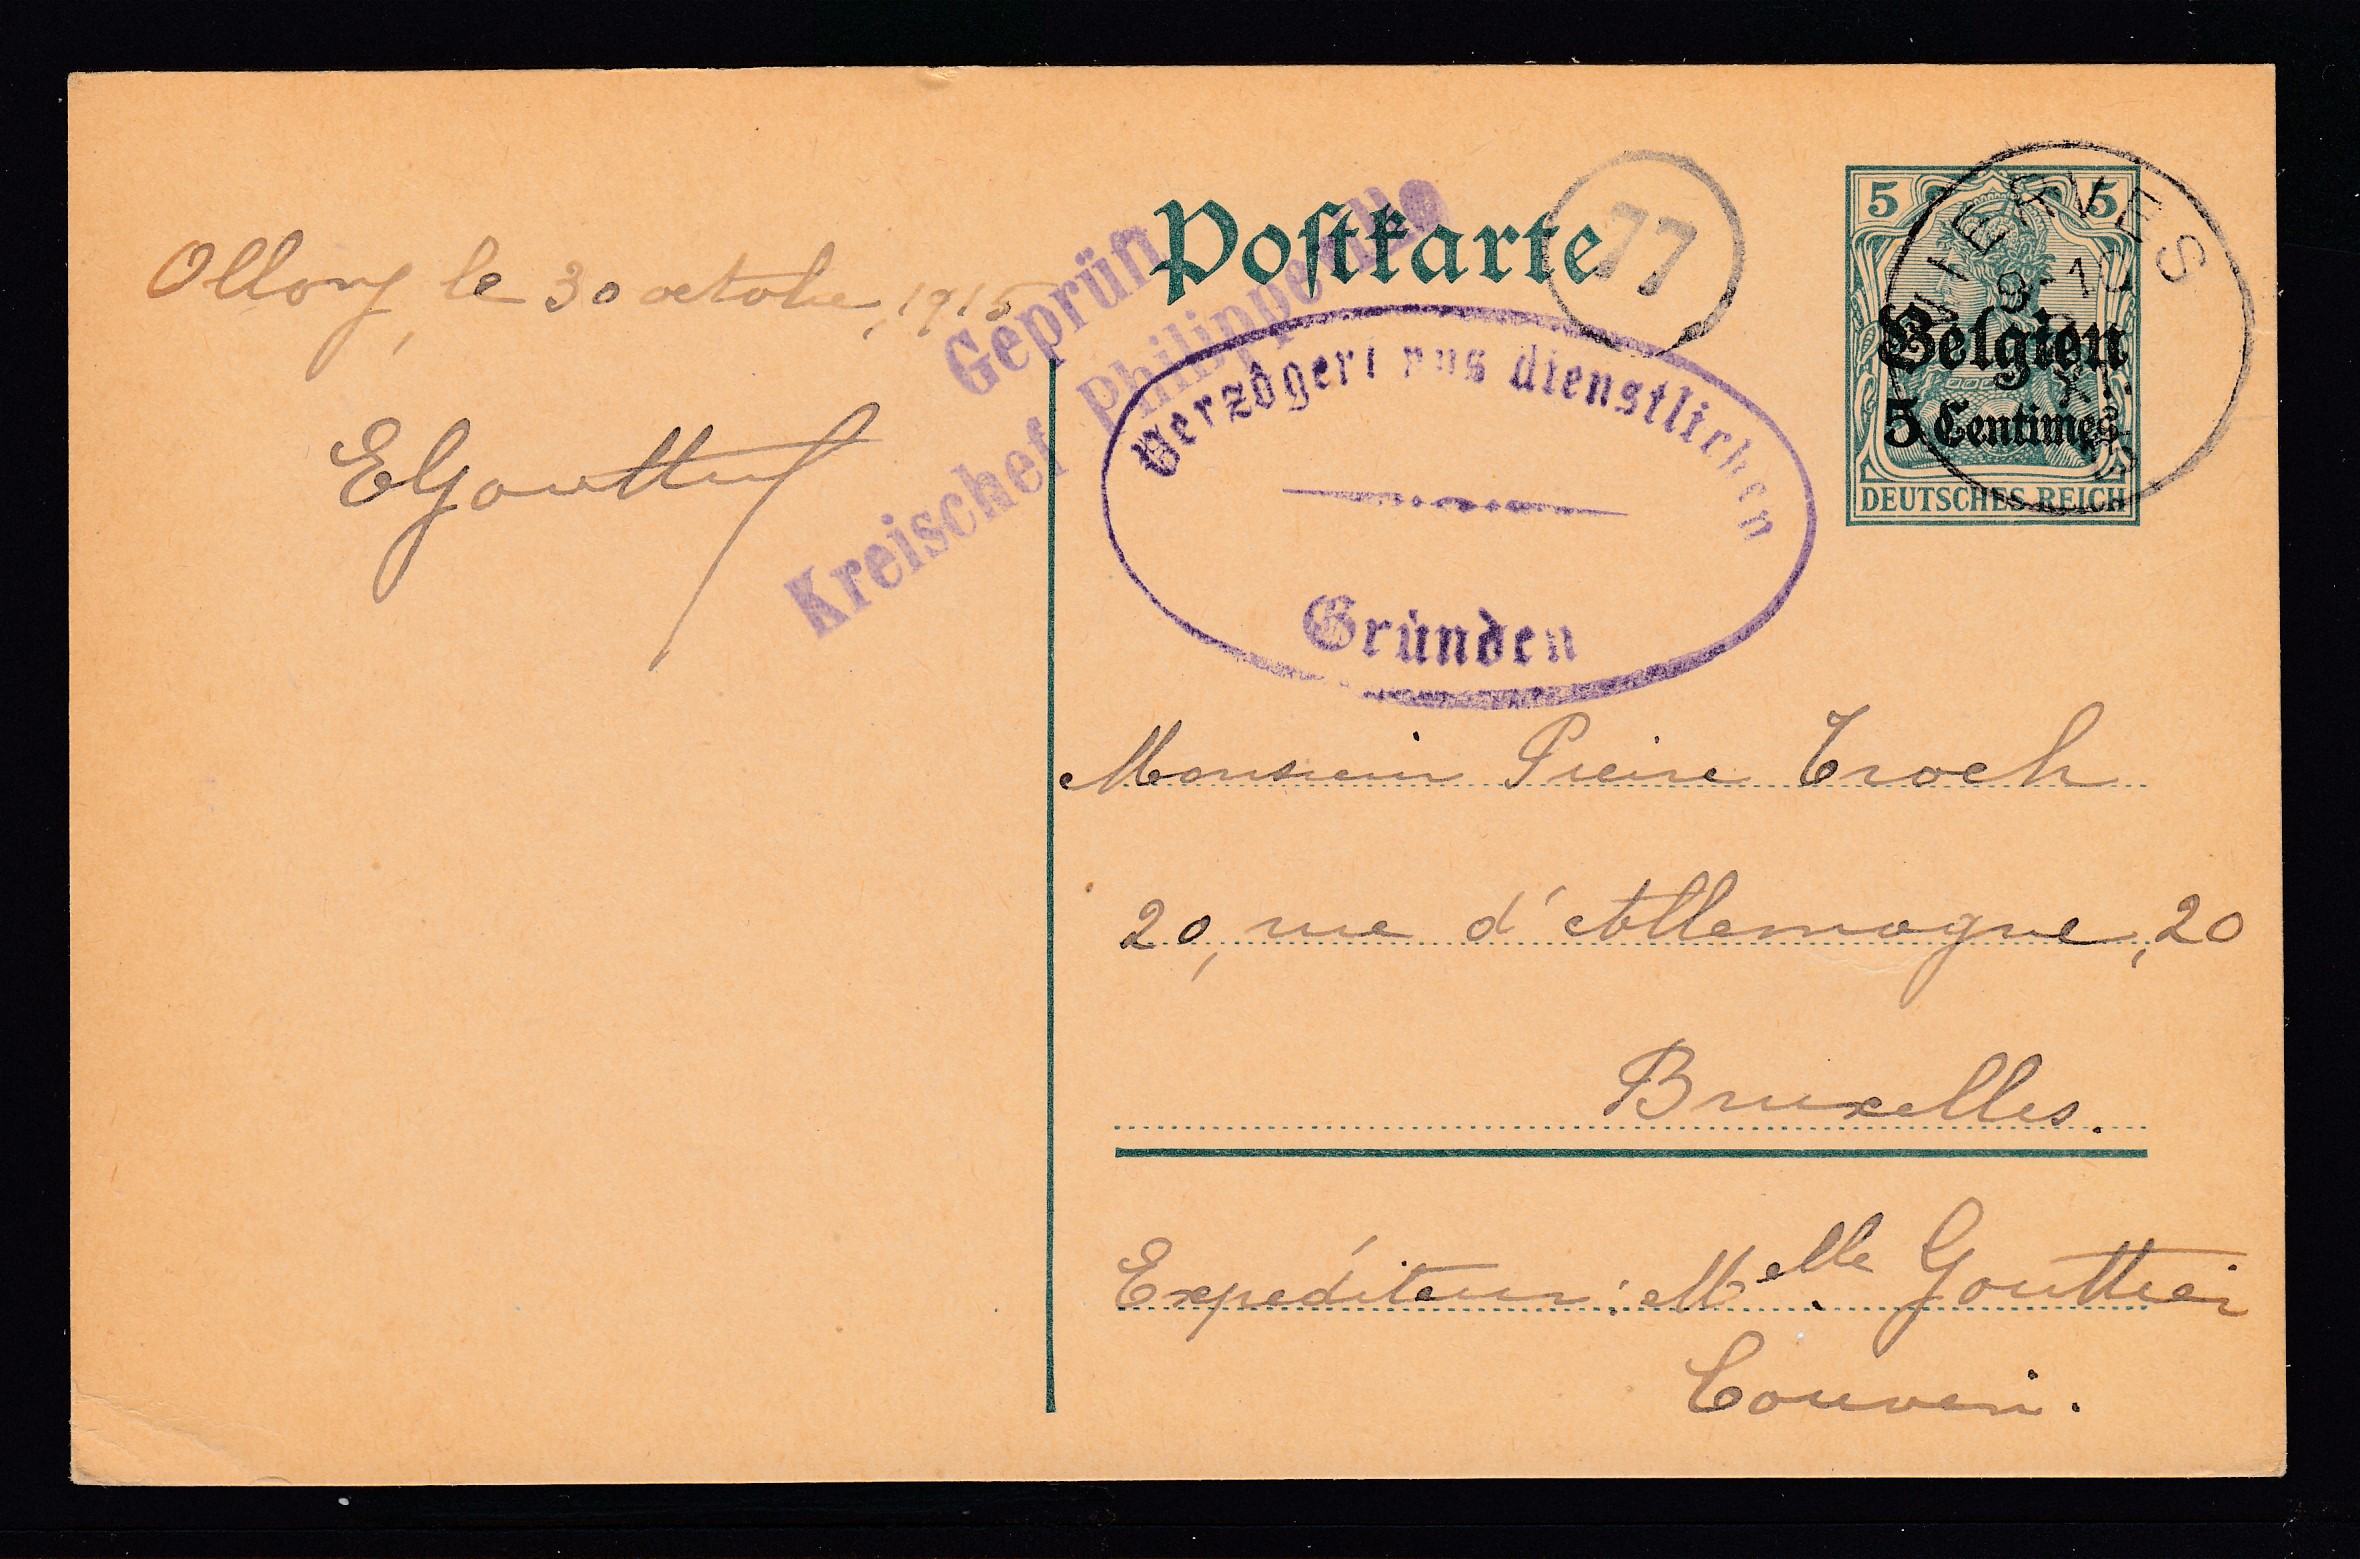 Postkarte
77
5 5
Belgien
5 Centimes
DEUTSCHES REICH
VIERVES
9-10
Geprüft
Kreischef Philippeville
Verzögert aus dienstlichen
Gründen
le 30 octobre, 1915
EGouttier
Monsieur Pierre Troch
20, rue d'Allemagne, 20
Bruxelles.
Expéditeur: Melle Gouttier
Couvin.